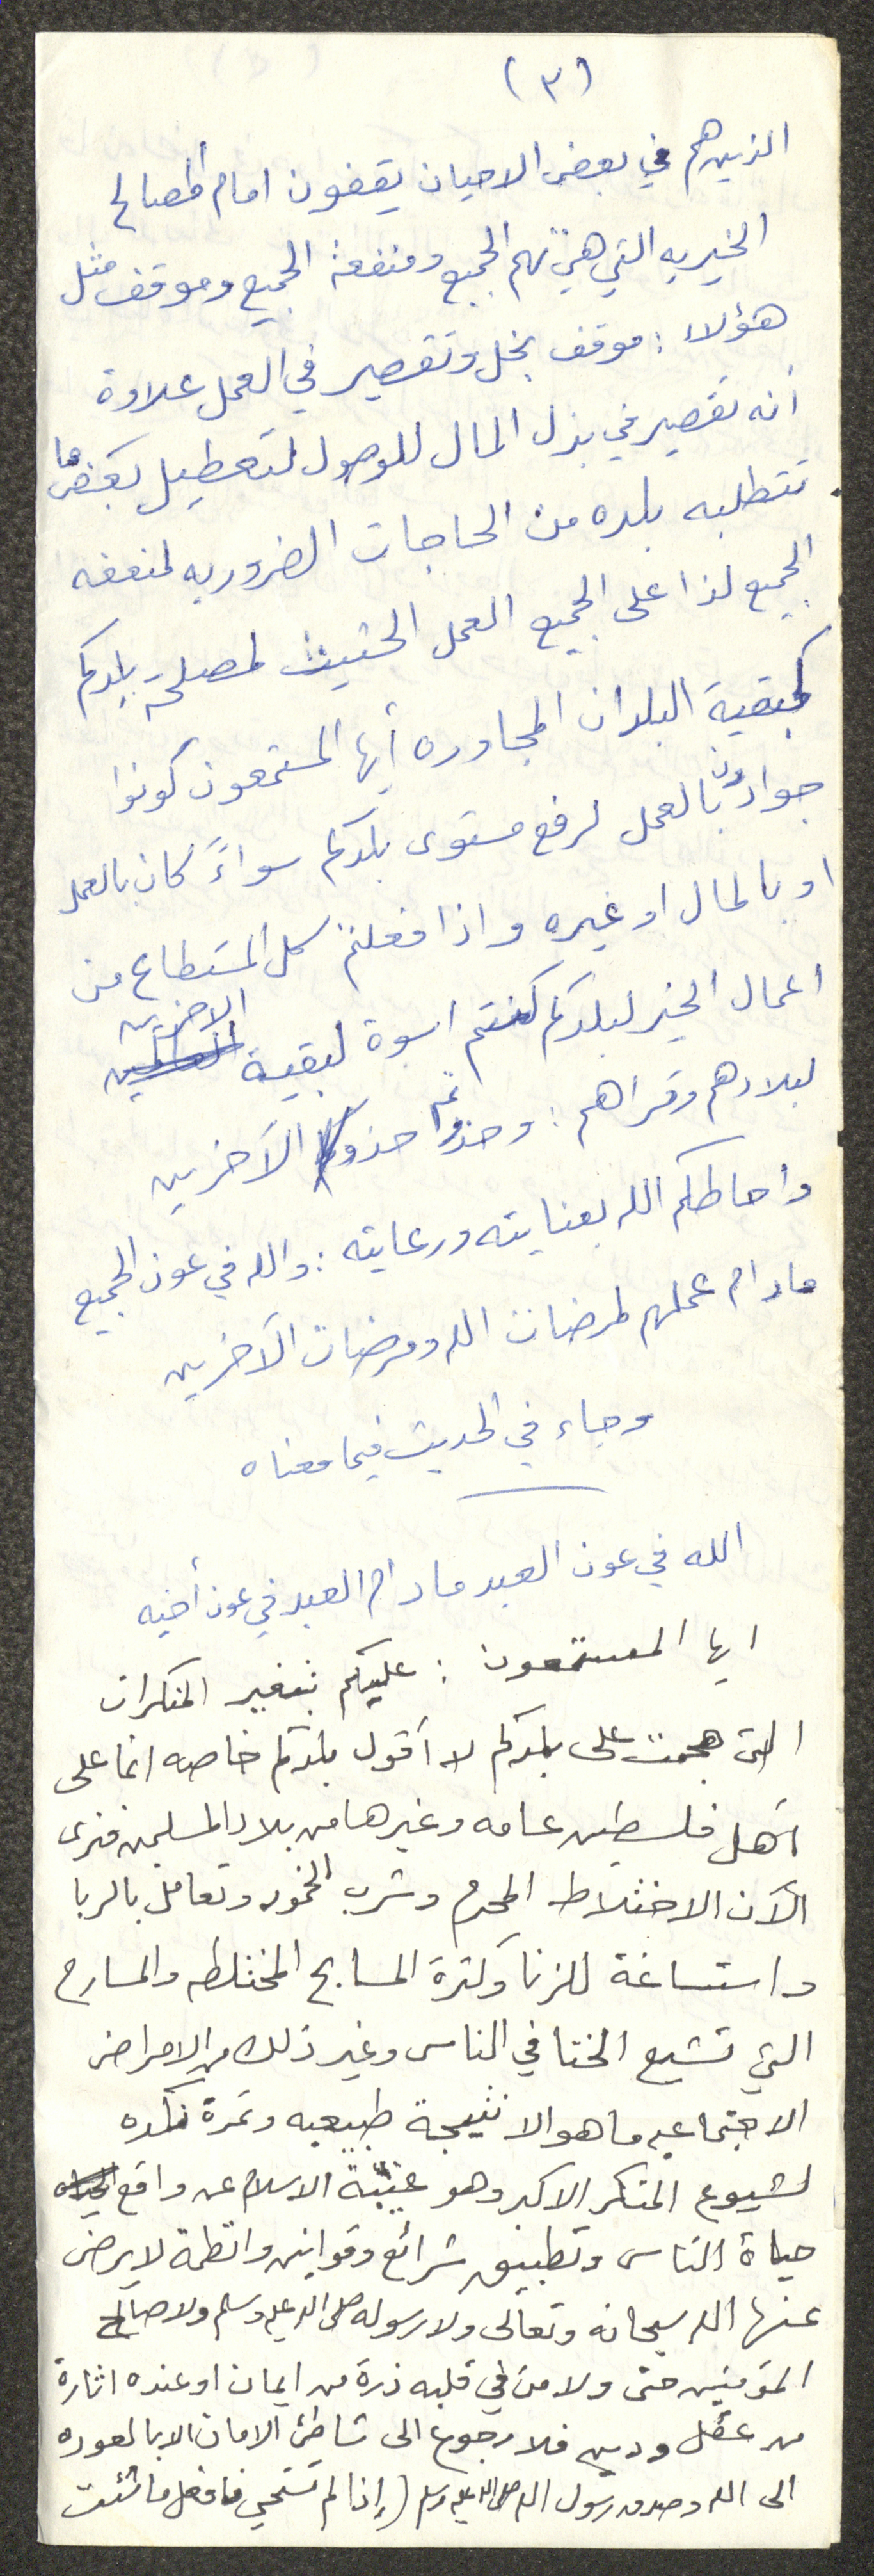 (٣)
الذين هم في بعض الاحيان يقفون امام المصالح
الخيريه التي هي تهم الجميع ومنفعة الجميع وموقف مثل
هؤلاء : موقف بخل وتقصير في العمل علاوة
أنه تقصير في بذل المال للوصول لتعطيل بعض ما
تتطلبه بلده من الحاجات الضروريه لمنفعه
الجميع لذا على الجميع العمل الحثيث لمصلحة بلدكم
كبقية البلدان المجاوره أيها المستمعون كونوا
جوادون بالعمل لرفع مستوى بلدكم سواءً كان بالعمل
او بالمال او غيره واذا فعلتم كل المستطاع من
اعمال الخير لبلدكم كنتم اسوة لبقية الاخرين
لبلادهم وقراهم : وحذوتم حذو الآخرين
واحاطكم الله بعنايته ورعايته : والله في عون الجميع
مادام عملهم لمرضات الله ومرضات الآخرين
وجاء في الحديث فيما معناه
الله في عون العبد مادام العبد في عون أخيه
ايها المستمعون : عليكم بتغير المنكرات
التي هجمت على بلدكم لا أقول بلدكم خاصه انما على
أهل فلسطين عامه وغيرها من بلاد المسلمين فنرى
الآن الاختلاط المحرم وشرب الخمور وتعامل بالربا
واستساغة للزنا وكثرة المسابح المختلطه والمسارح
التي تشيع الخنا في الناس وغير ذلك من الامراض
الاجتماعيه ما هو الا نتيجة طبيعيه وثمرة نكده
لشيوع المنكر الاكبر وهو غيبة الاسلام عن واقع
حياة الناس وتطبيق شرائع وقوانين وانظمة لا يرضى
عنها الله سبحانه وتعالى ولا رسوله صلى الله عليه وسلم ولا صالح
المؤمنين حتى ولا من في قلبه ذرة من ايمان او عنده اثارة
من عقل ودين فلا رجوع الى شاطئ الامان الا بالعوده
الى الله وصدق رسول الله صلى الله عليه وسلم (إذا لم تستحي فافعل ما شئت